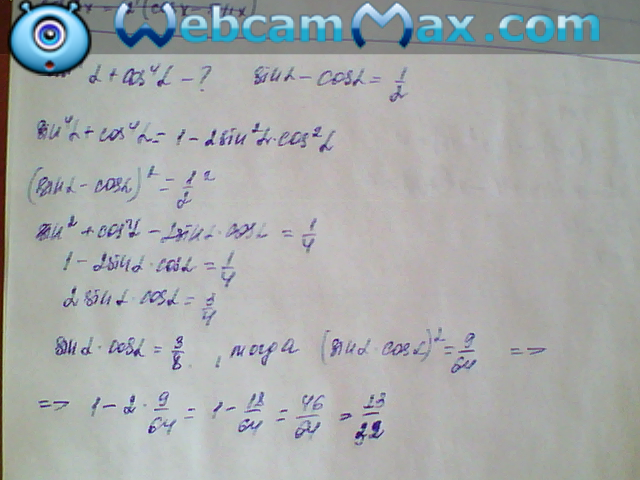 WebcamMax.com
α + cos⁴α - ? sinα - cosα = 1/2
sin⁴α + cos⁴α = 1 - 2sin²α·cos²α
(sinα - cosα)² = 1/2²
sin² + cos²α - 2sinα·cosα = 1/4
1 - 2sinα·cosα = 1/4
2sinα·cosα = 3/4
sinα·cosα = 3/8, тогда (sinα·cosα)² = 9/64 =>
=> 1 - 2·9/64 = 1 - 18/64 = 46/64 = 23/32